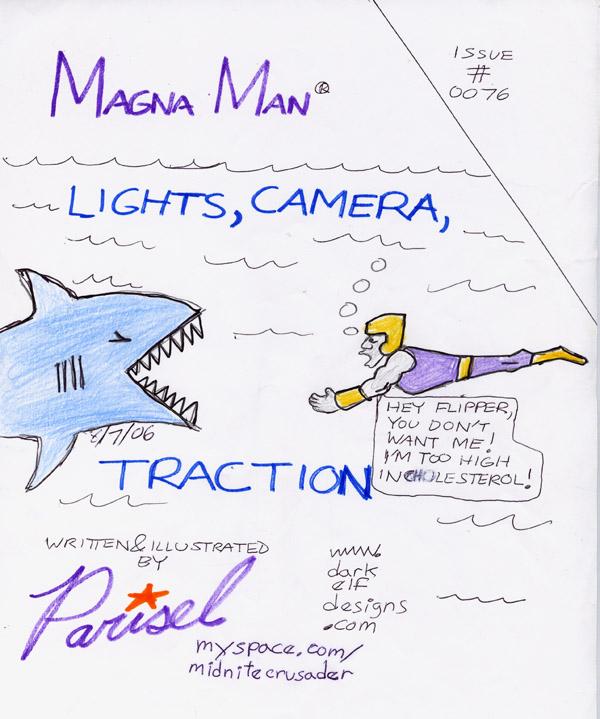 MAGNA MAN®
ISSUE
#
0076
LIGHTS, CAMERA,
8/7/06
HEY FLIPPER,
YOU DON'T
WANT ME!
I'M TOO HIGH
IN CHOLESTEROL!
TRACTION
WRITTEN & ILLUSTRATED
BY
Parisel
www.
dark
elf
designs
.com
myspace.com/
midnitecrusader